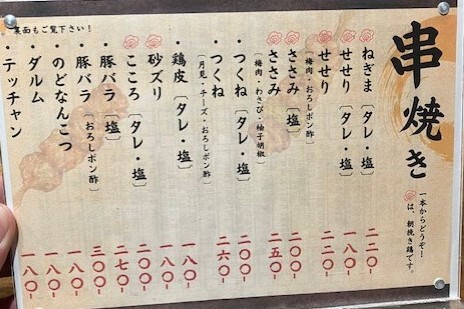 串焼き
一本からどうぞ!
は、朝挽き鶏です。
ねぎま〔タレ・塩〕 二二〇-
せせり〔タレ・塩〕 一八〇-
せせり 二二〇-
〔梅肉・おろしポン酢〕
ささみ〔塩〕 二〇〇-
ささみ 二五〇-
〔梅肉・わさび・柚子胡椒〕
・つくね〔タレ・塩〕
・つくね 二六〇-
〔月見・チーズ・おろしポン酢〕
・鶏皮〔タレ・塩〕 一八〇-
砂ズリ 一八〇-
こころ〔タレ・塩〕 二〇〇-
・豚バラ〔塩〕 二七〇-
・豚バラ〔おろしポン酢〕 三〇〇-
・のどなんこつ 一八〇-
・ダルム 一八〇-
・テッチャン 一八〇-
裏面もご覧下さい!